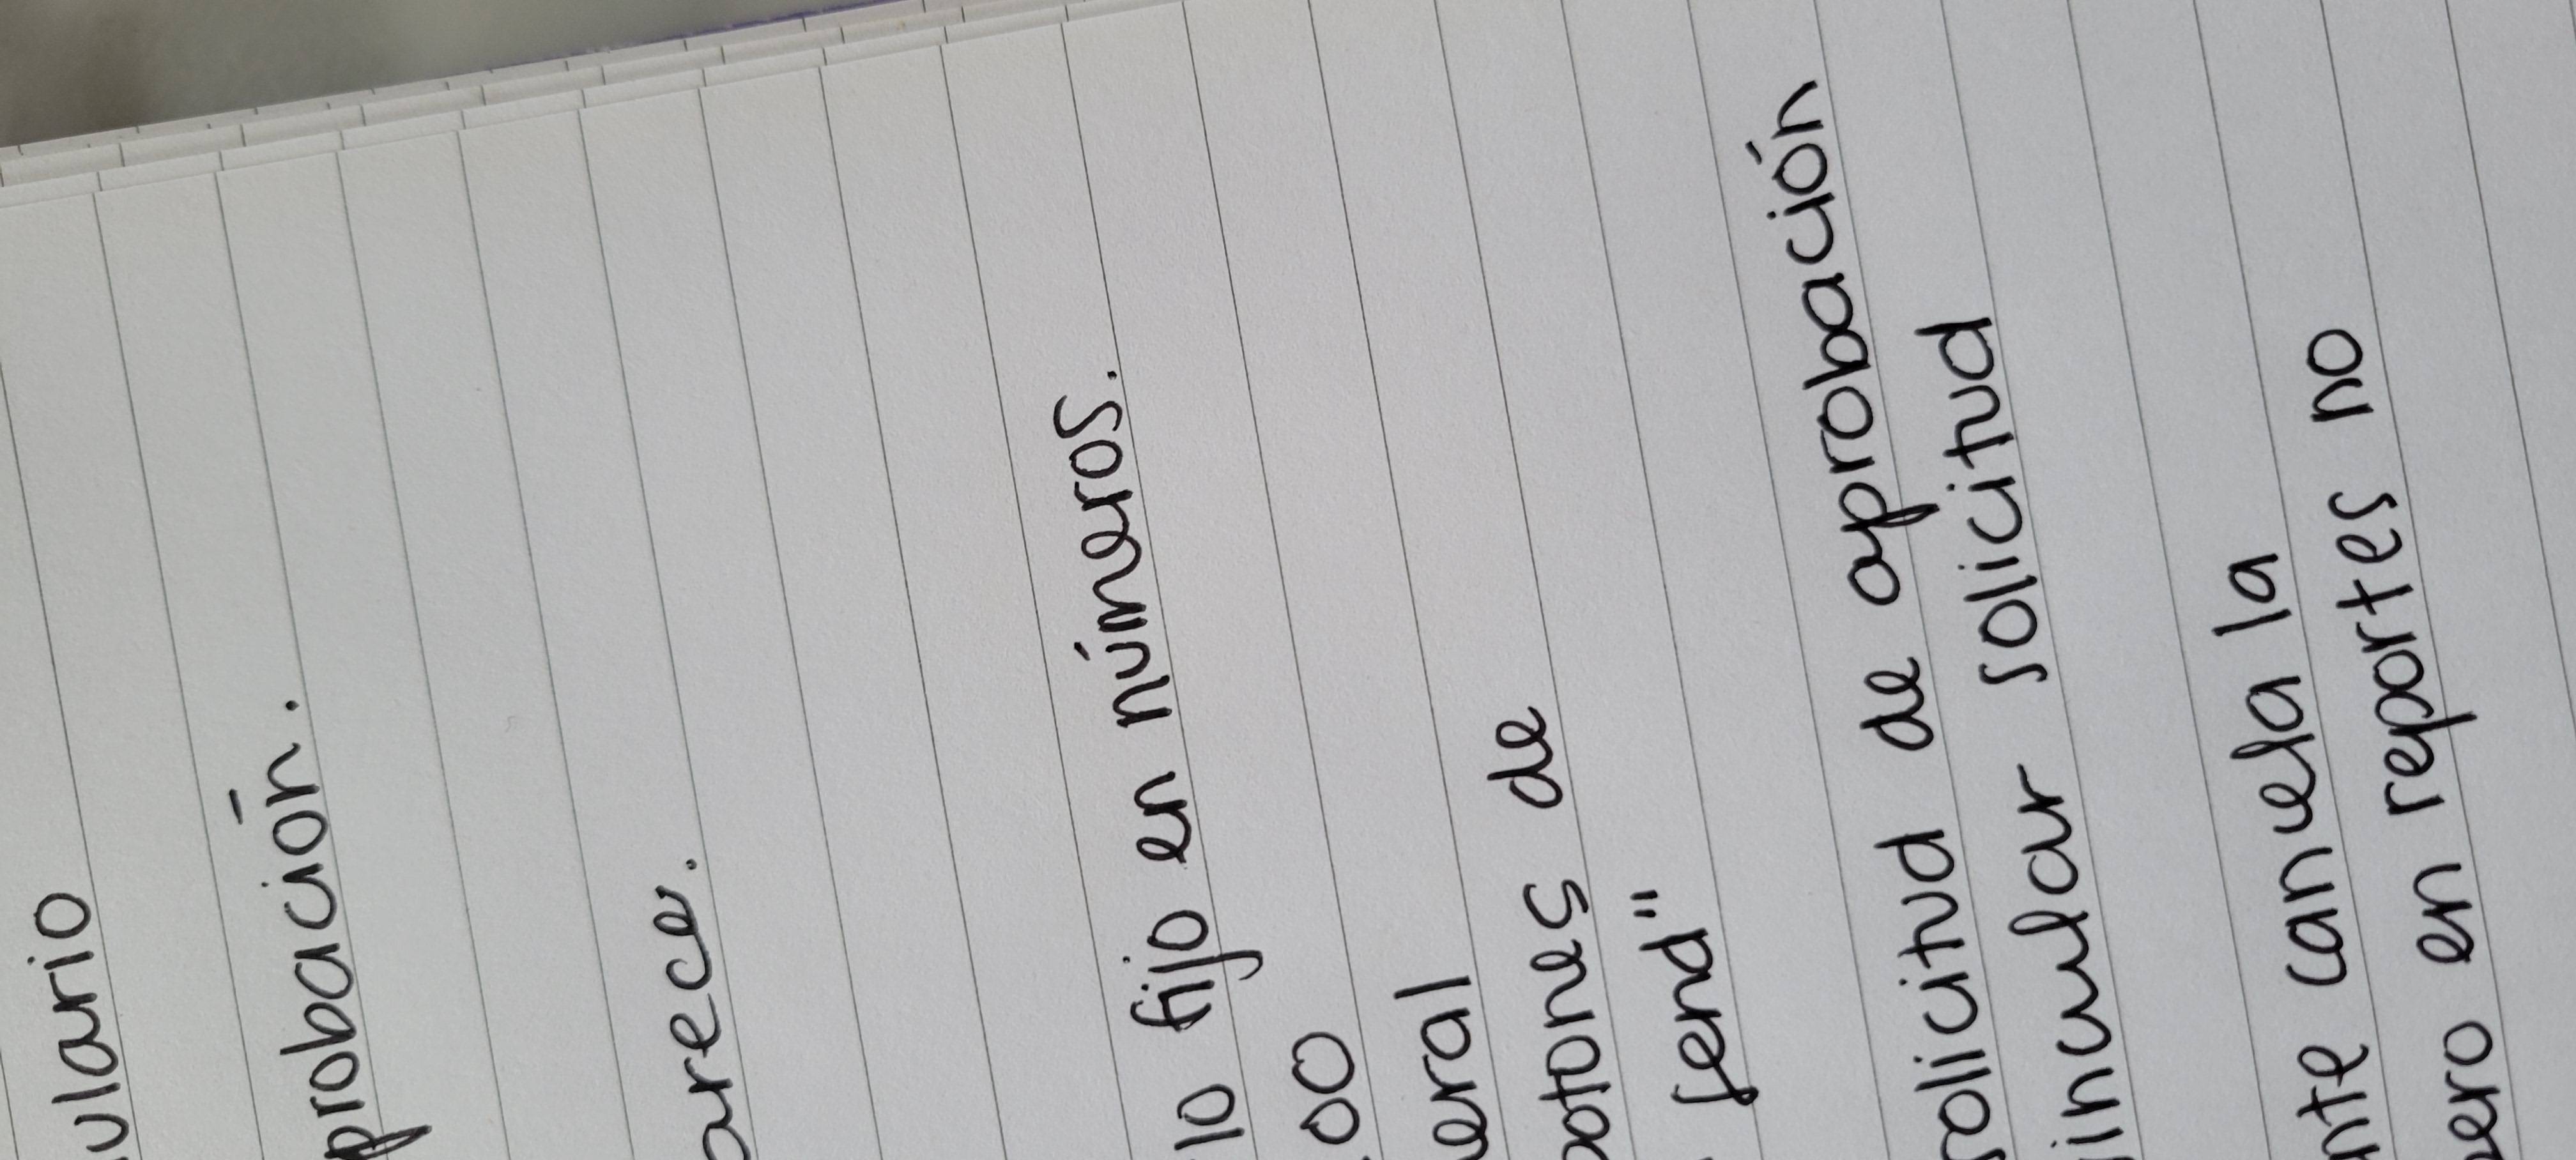 ulario
probación.
arece.
lo fijo en números.
00
eral
otones de
fend"
solicitud de aprobación
incular solicitud
nte cancela la
pero en reportes no